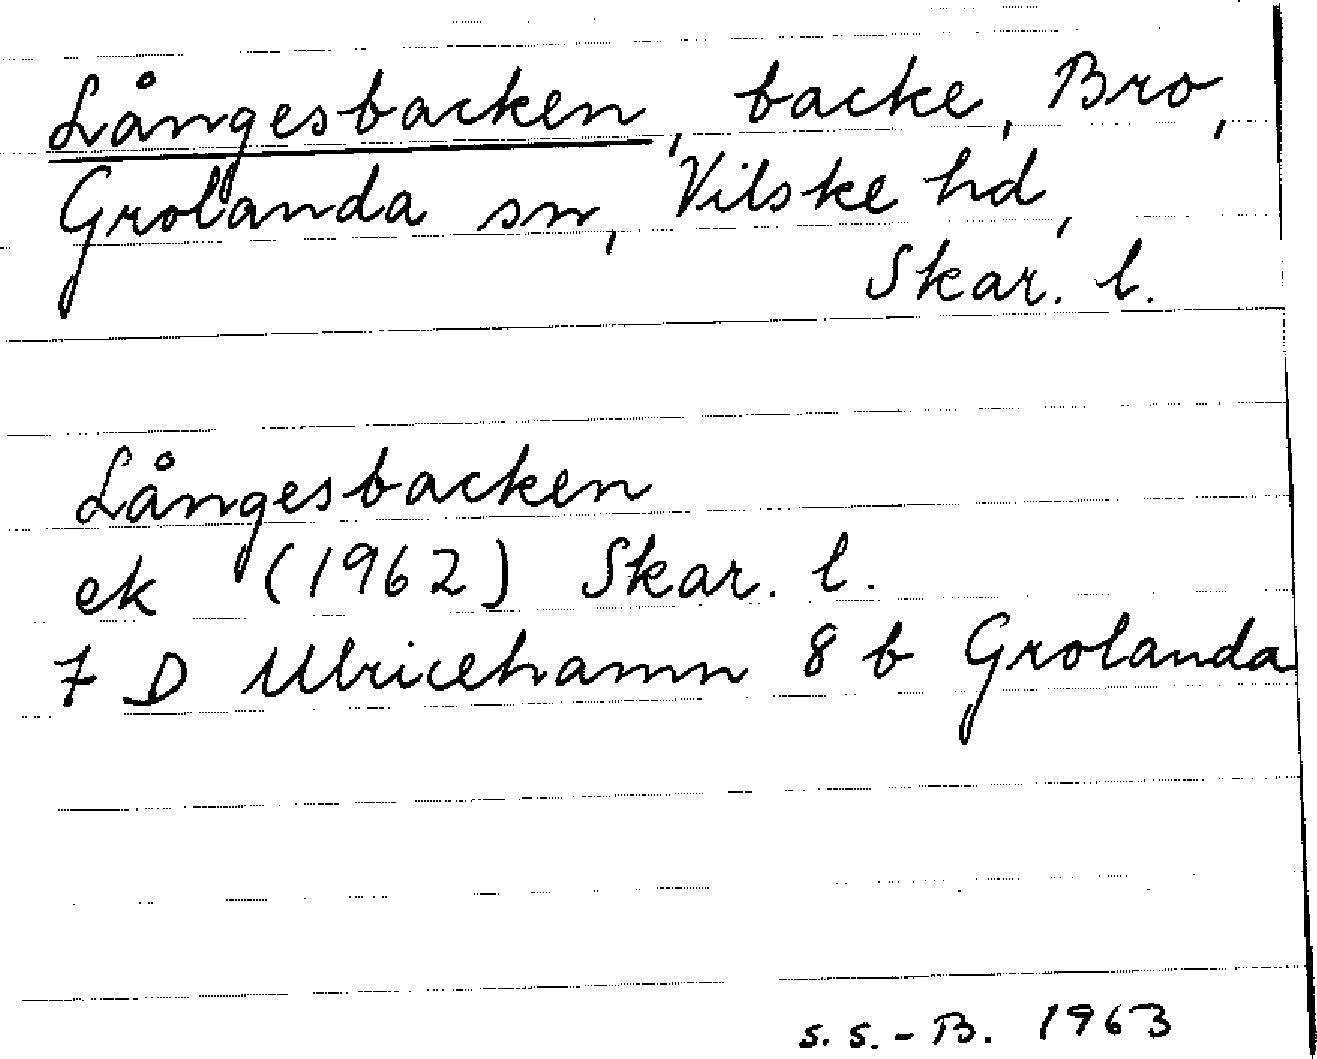 Långesbacken, backe, Bro,
Grolanda sn, Vilske hd,
Skar. l.
Långesbacken
ek (1962) Skar. l.
7 D Ulricehamn 8 b Grolanda
s. s. - B. 1963